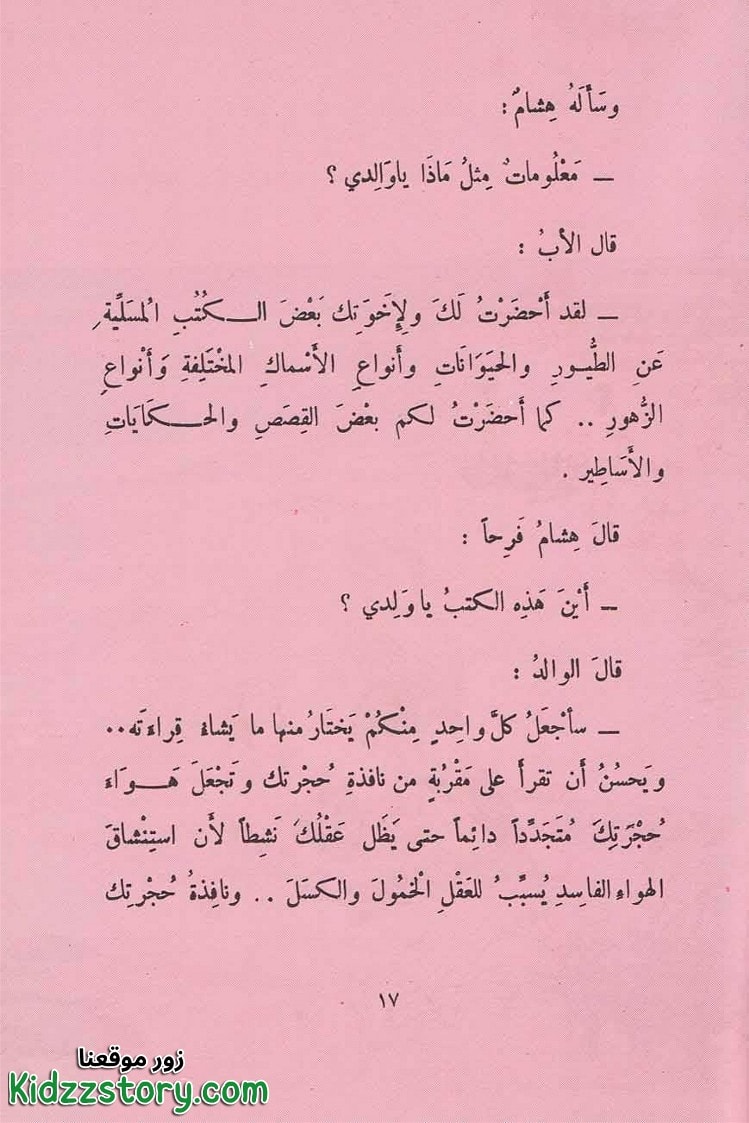 وسَأَلَهُ هِشامٌ :
ــ مَعْلُوماتٌ مِثلُ مَاذَا ياوَالِدي ؟
قال الأبُ :
ــ لقد أَحْضَرْتُ لَكَ ولِإِخوَتِك بَعْضَ الــكُتُبِ المُسَلِّيةِ
عَنِ الطُّيــورِ والحَيَوَانَاتِ وأَنواعِ الأَسماكِ المخْتَلِفةِ وَأَنْواعِ
الزُّهورِ .. كما أَحضَرْتُ لكم بعْضَ القِصَصِ والحــكَايَاتِ
والأَسَاطِير .
قالَ هِشامُ فَرِحاً :
ــ أَيْنَ هَذِهِ الكتبُ ياوَلِدي ؟
قالَ الوالدُ :
ــ سأجْعَلُ كلَّ واحِدٍ مِنْكُمْ يَختَارُ منها ما يَشاءُ قِراءَتَه..
ويَحسُنُ أَن تقرأَ على مَقْرُبةٍ من نافذةِ حُجْرتِك وتَجْعَلَ هَــواءَ
حُجْرَتِكَ مُتَجَدِّداً دائِماً حتى يَظَل عَقْلُكَ نَشِطاً لأَن استِنْشاقَ
الهواءِ الفاسِدِ يُسبِّبُ للعَقْلِ الْخمُولَ والكسَلَ .. ونافِذةُ حُجْرتِك
١٧
زور موقعنا
Kidzzstory.com